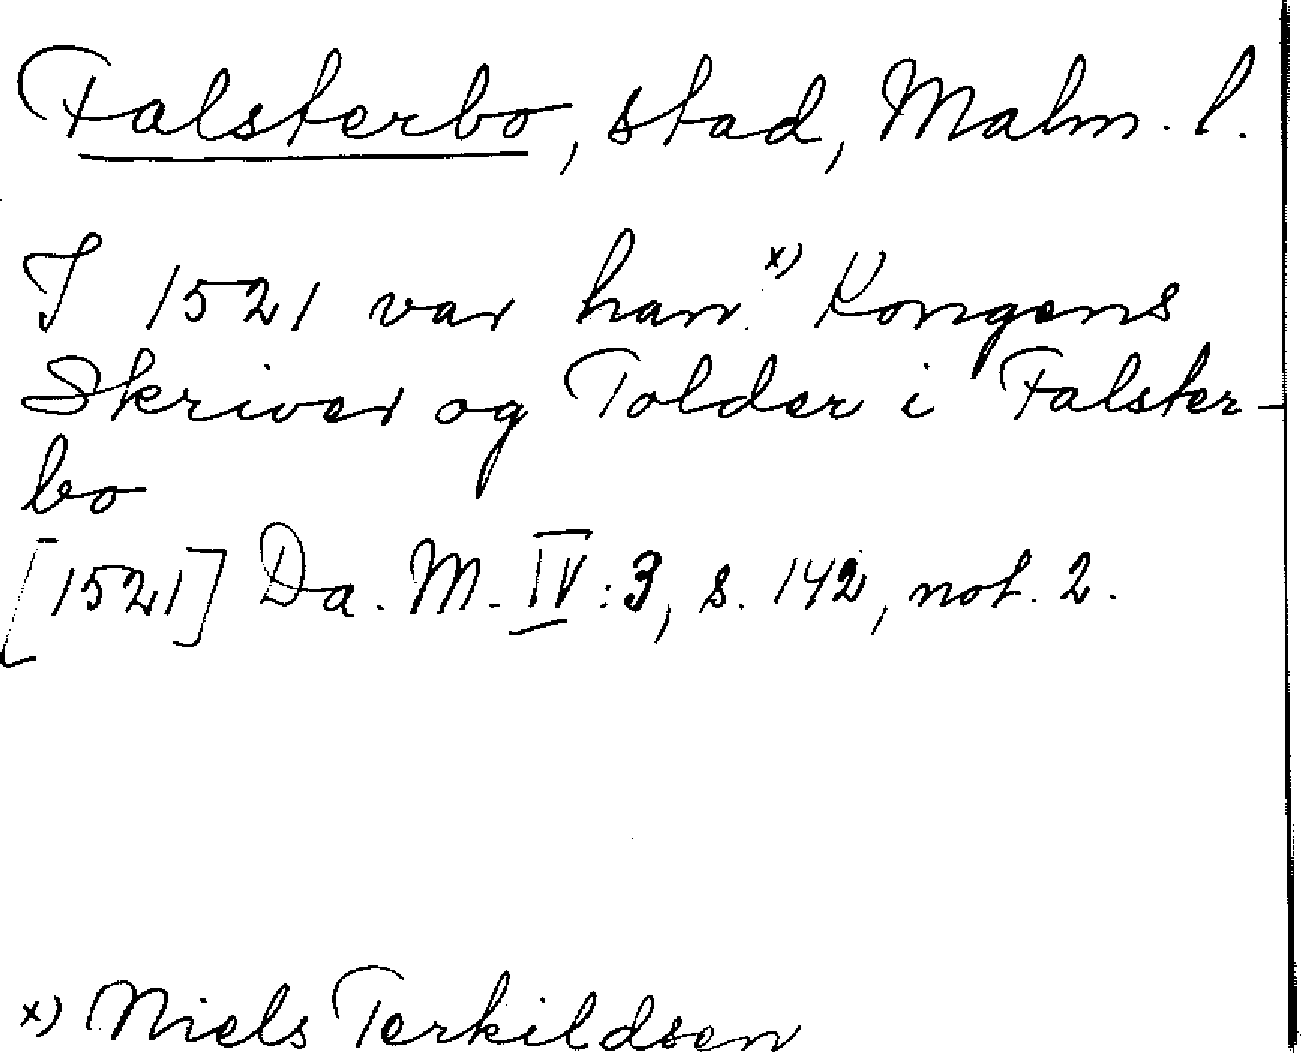 Falsterbo, stad, Malm. l.
I 1521 var han x) Kongens
Skriver og Tolder i Falster-
bo
[1521] Da. M. IV: 3, s. 142, not. 2.
x) Niels Terkildsen